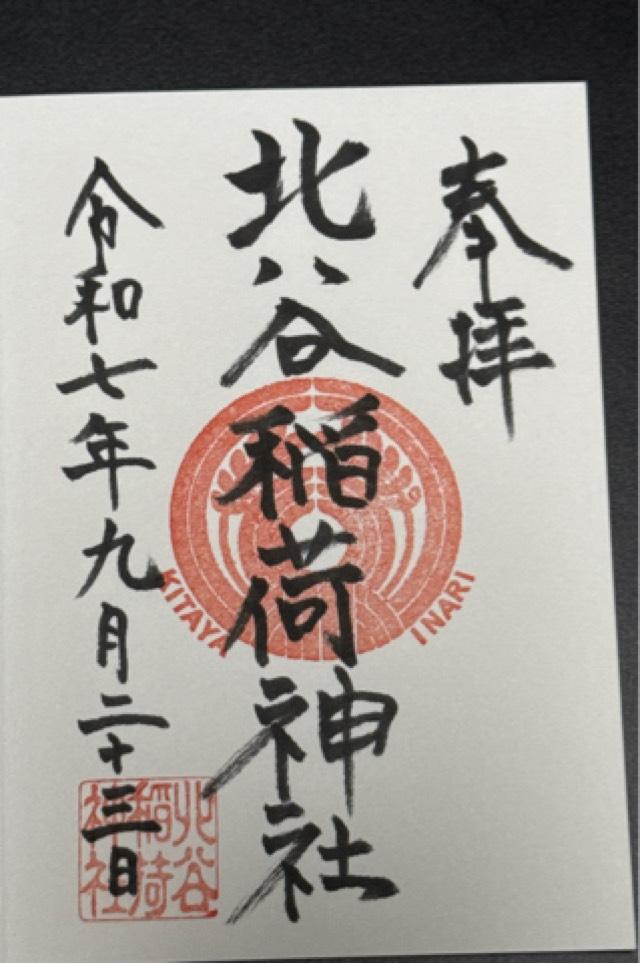 奉拝
北谷稲荷神社
令和七年九月二十三日
KITAYA INARI
北谷
稲荷
神社